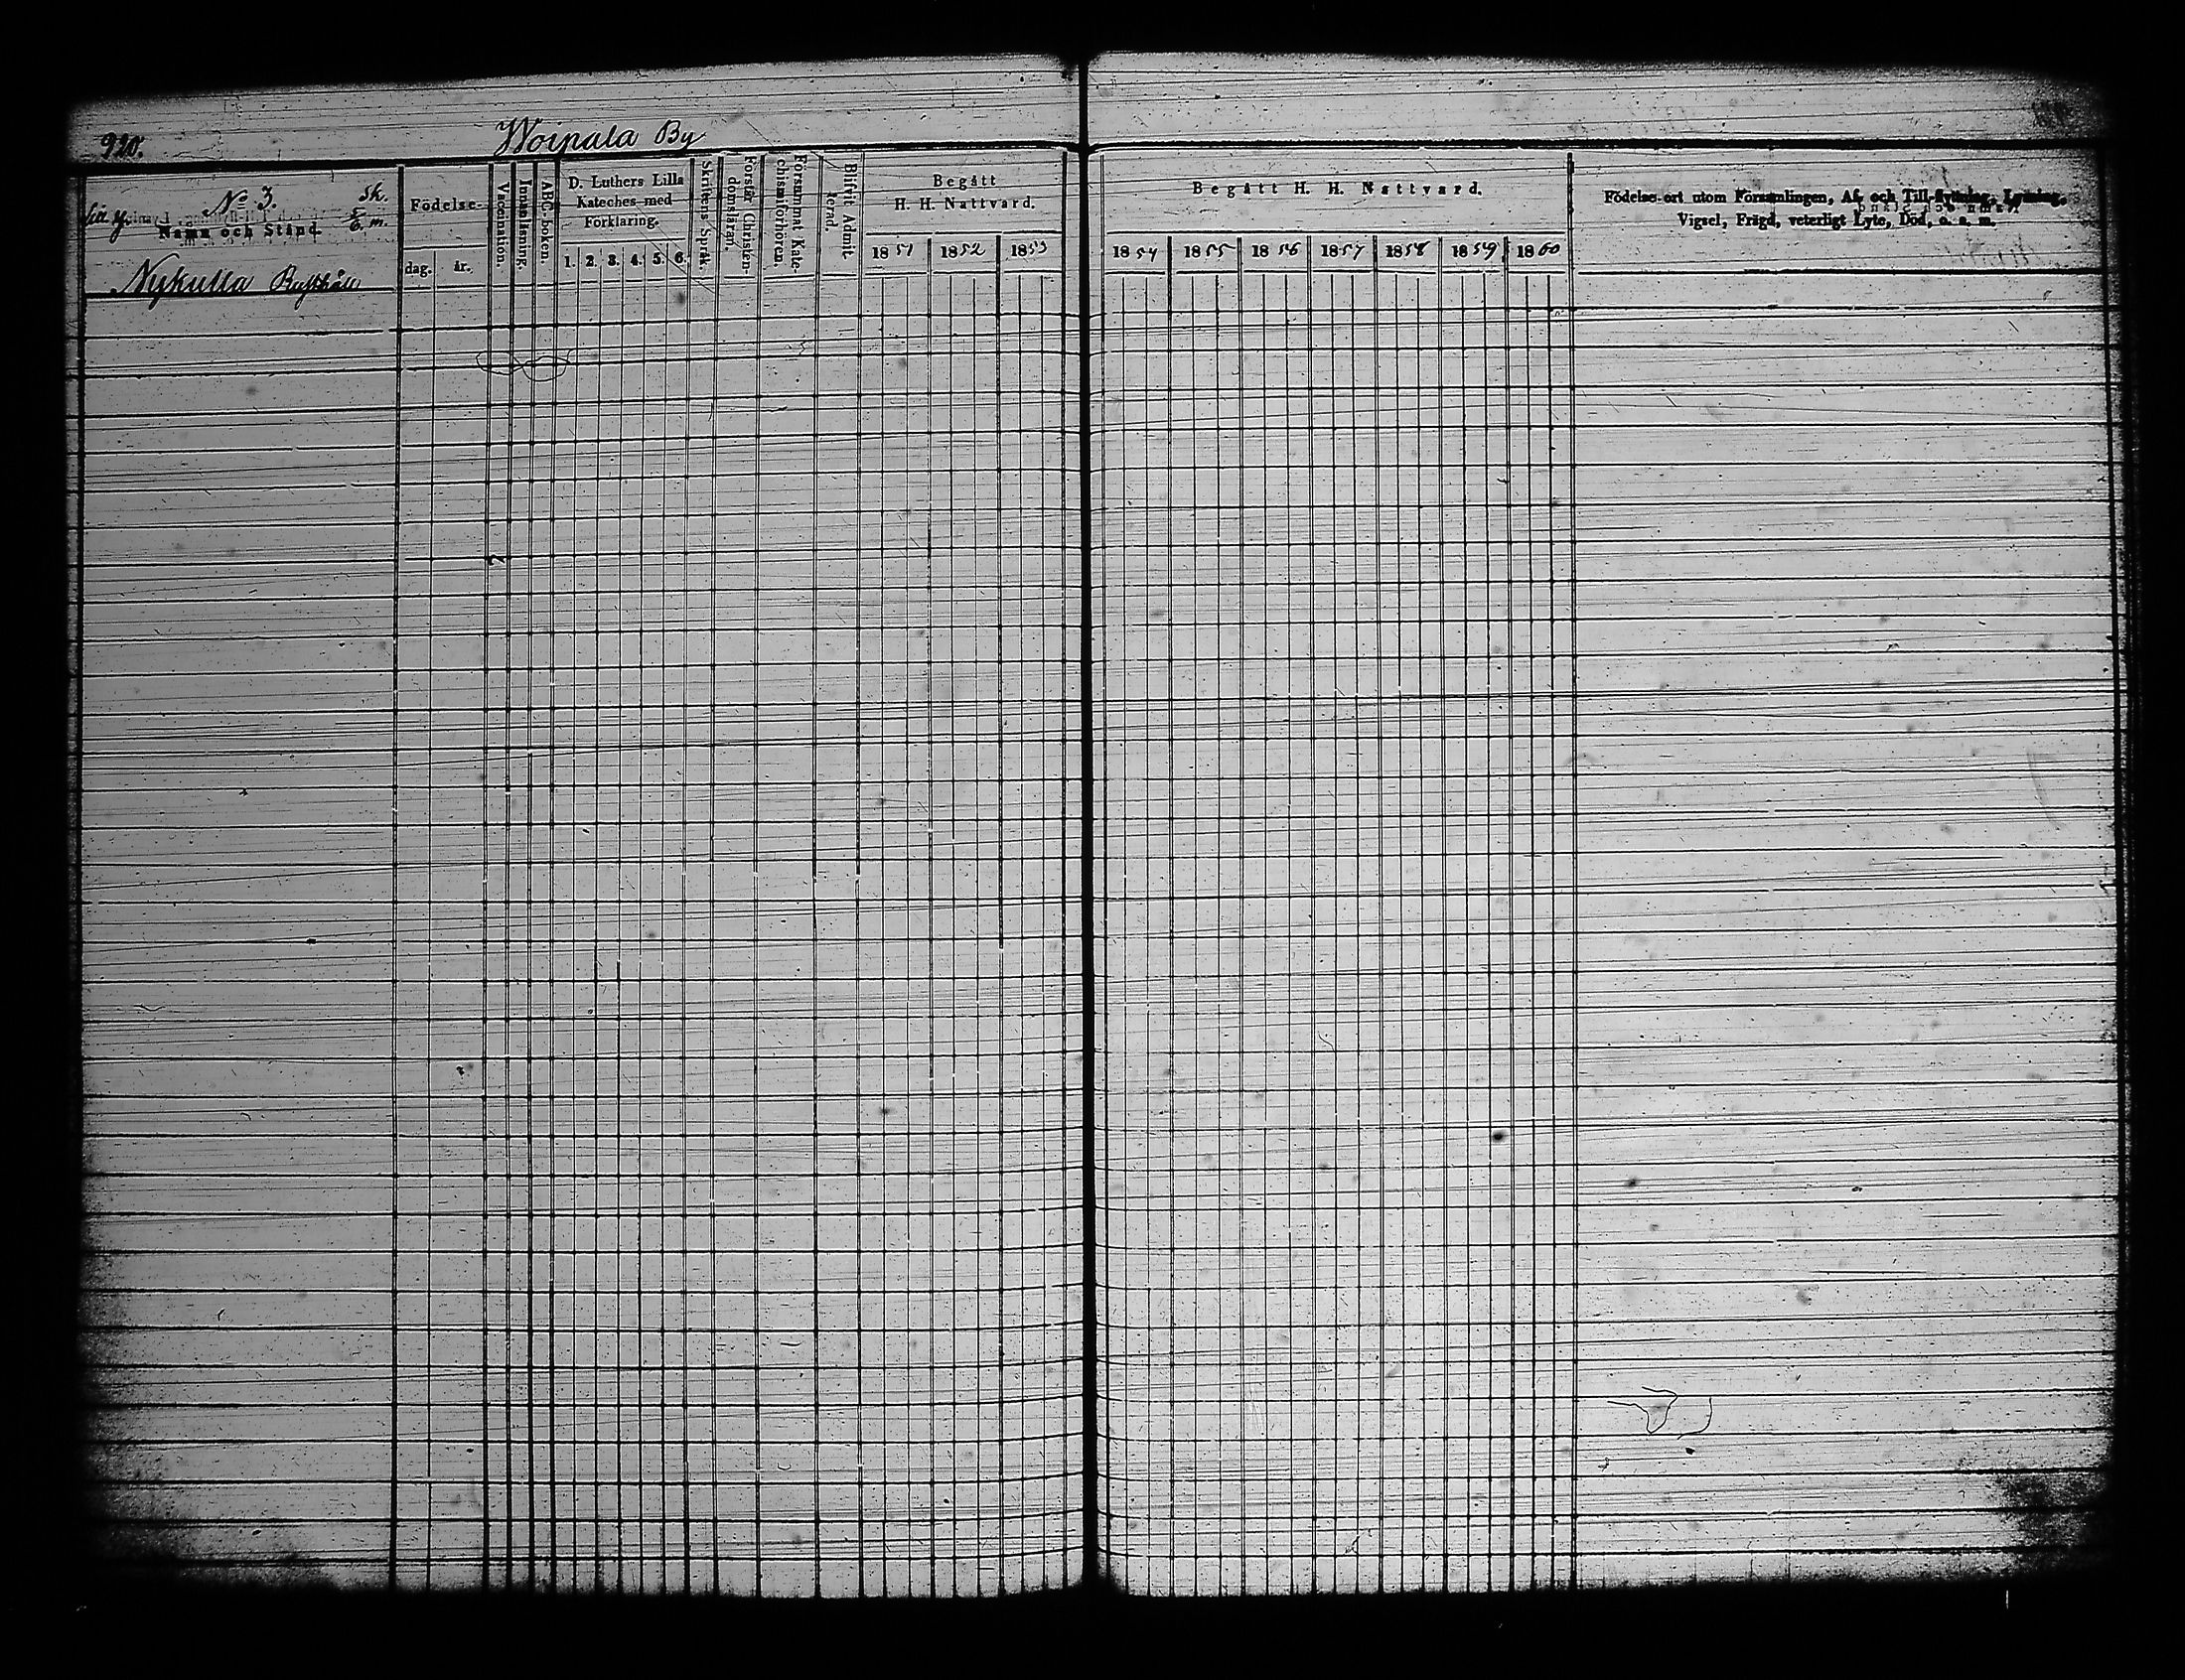 920.
Woipala By
No 3.
sk.
6 m.
Namn och Stånd.
Nykulla Rusthåll
Födelse-
dag. år.
Vaccination.
Innanläsning.
ABC-boken
D. Luthers Lilla
Kateches med
Förklaring.
1. 2. 3. 4. 5. 6.
Skriftens Språk.
Förstår Christen-
domsläran.
Försummat Kate-
chismiförhören.
Blifvit Admit-
terad.
Begått
H. H. Nattvard.
1851 1852 1853
Begått H. H. Nattvard.
1854 1855 1856 1857 1858 1859 1860
Födelse-ort utom Församlingen, Af- och Till-flyttning, Lysning,
Vigsel, Frägd, veterligt Lyte, Död, o. s. m.